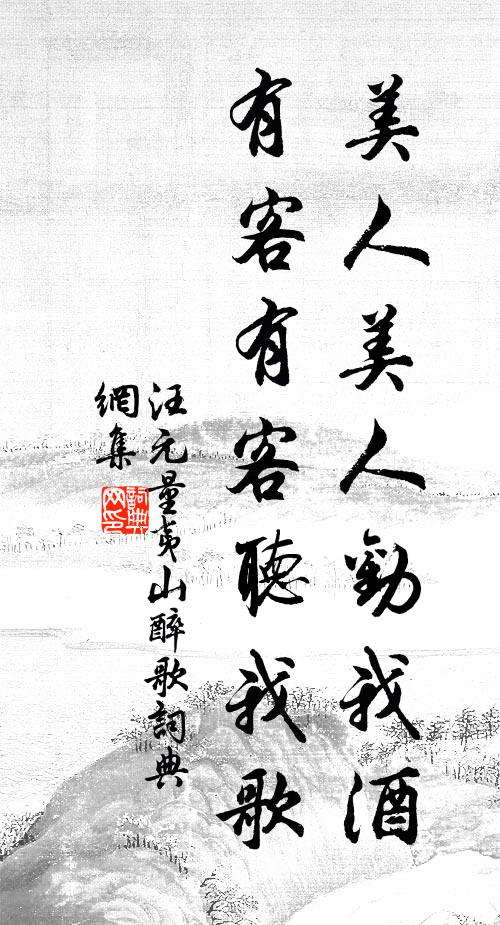 美人美人勸我酒
有客有客聽我歌
汪元量夷山醉歌詞典
網集
詞典網印